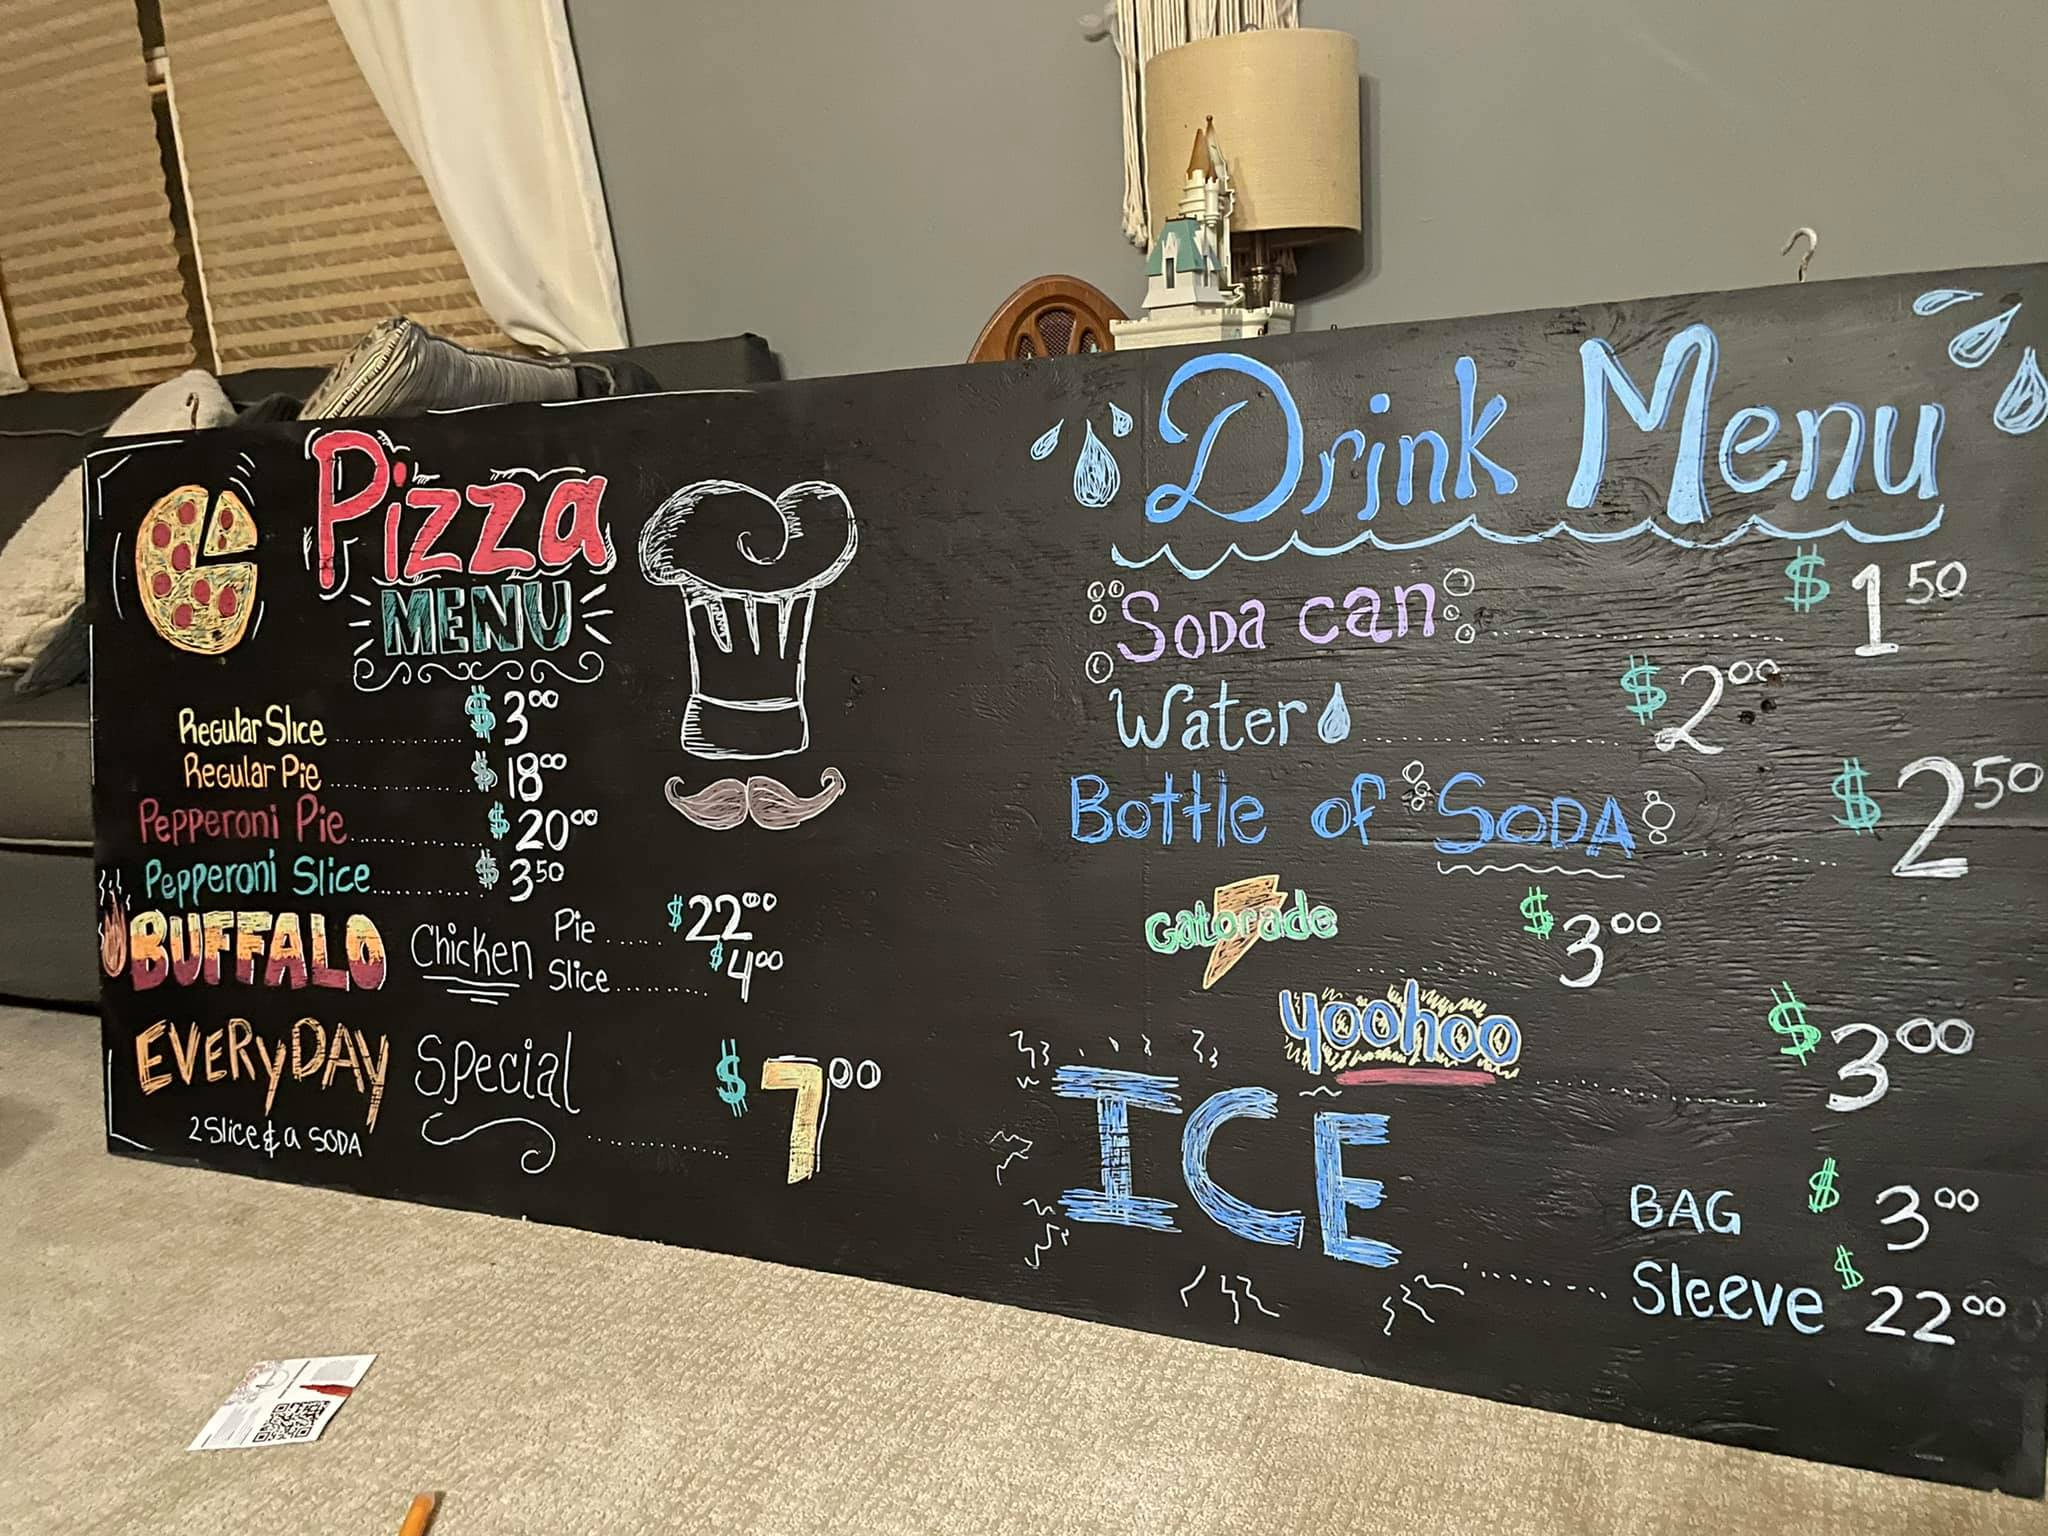 Pizza
MENU
Regular Slice ........... $ 3.00
Regular Pie ............ $ 18.00
Pepperoni Pie ............ $ 20.00
Pepperoni Slice .......... $ 3.50
BUFFALO Chicken Pie ...... $ 22.00
Slice .......... $ 4.00
EVERYDAY Special ............ $ 7.00
2 Slice & a SODA
Drink Menu
Soda can .................... $ 1.50
Water .................... $ 2.00
Bottle of SODA ............ $ 2.50
Gatorade ............ $ 3.00
yoohoo .................... $ 3.00
ICE ............ BAG $ 3.00
Sleeve $ 22.00